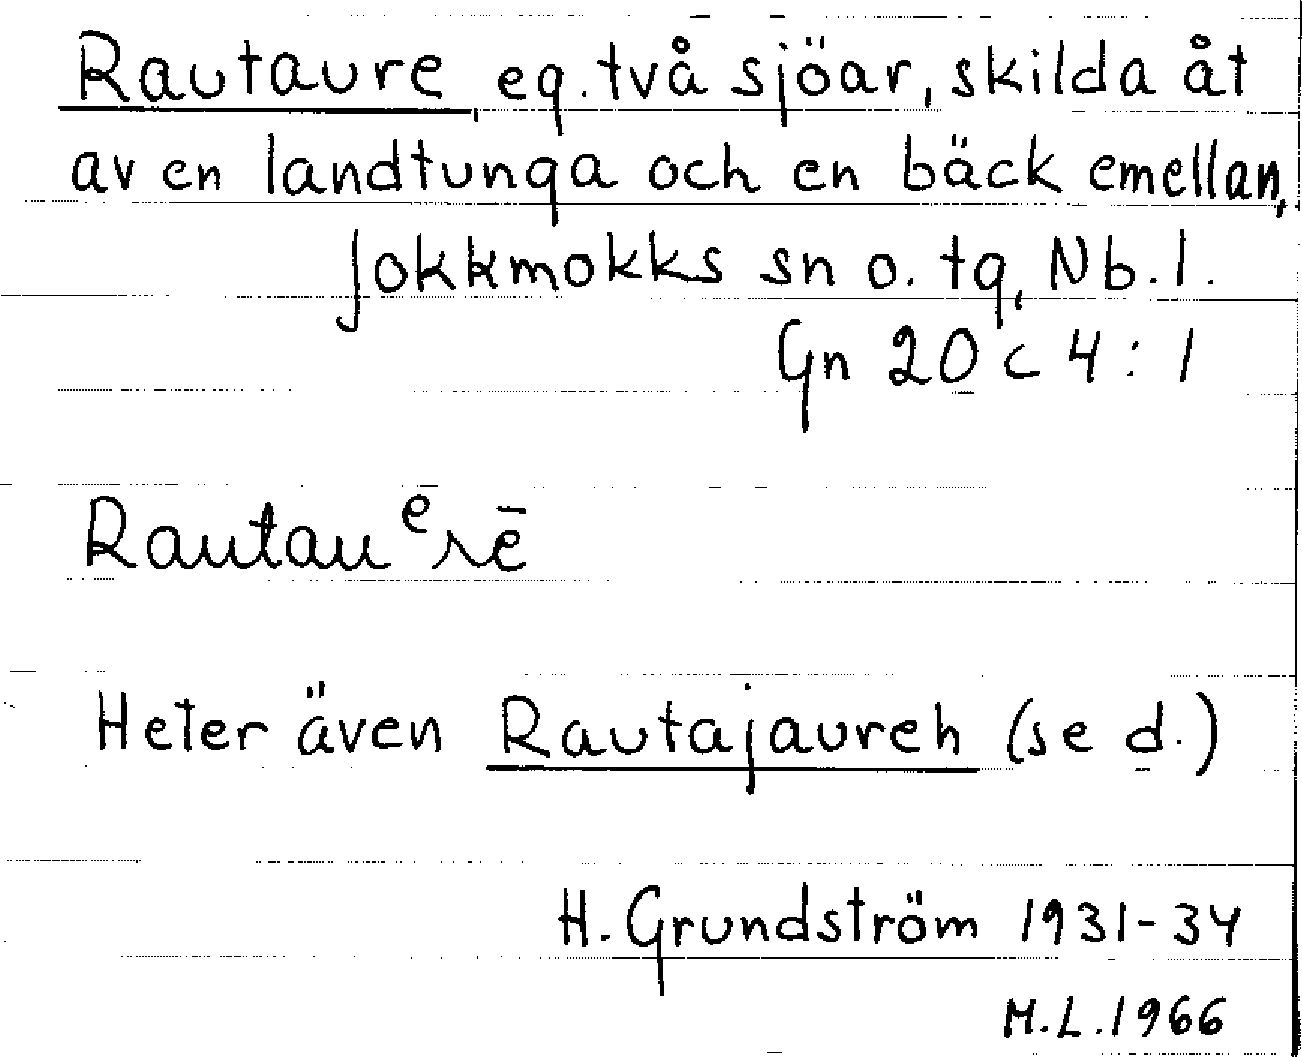 Rautaure, eg. två sjöar, skilda åt
av en landtunga och en bäck emellan,
Jokkmokks sn o. tg, Nb. l.
Gn 20 c 4 : 1
Rautauᵉrē
Heter även Rautajaureh (se d.)
H. Grundström 1931-34
M.L. 1966